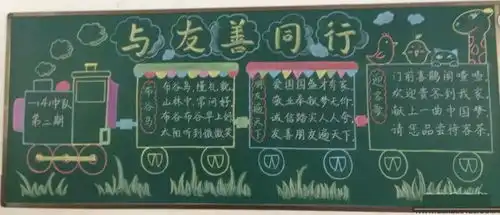 与友善同行
一(4)中队
第二期
布谷鸟
布谷鸟,懂礼貌,
山林中,常问好,
布谷布谷早上好,
太阳听到微微笑
朋友遍天下
爱国国盛才有家,
敬业奉献梦无价,
诚信踏实人人夸,
友善朋友遍天下.
迎客歌
门前喜鹊闹喳喳,
欢迎贵客到我家,
献上一曲中国梦,
请您品尝待客茶.